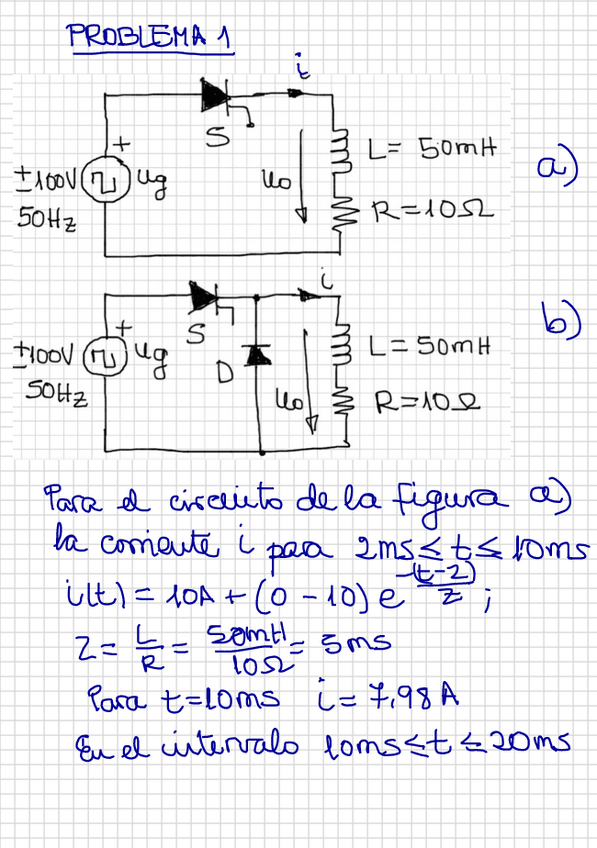 PROBLEMA 1
i
S
+
±100V
50Hz
ug
uo
L= 50mH
R=10Ω
a)
i
S
+
±100V
50Hz
ug
D
uo
L=50mH
R=10Ω
b)
Para el circuito de la figura a)
la corriente i para 2ms≤t≤10ms
i(t) = 10A + (0 - 10) e^(-(t-2)/τ) ;
τ = L/R = 50mH/10Ω = 5ms
Para t=10ms i=7,98A
En el intervalo 10ms≤t≤20ms